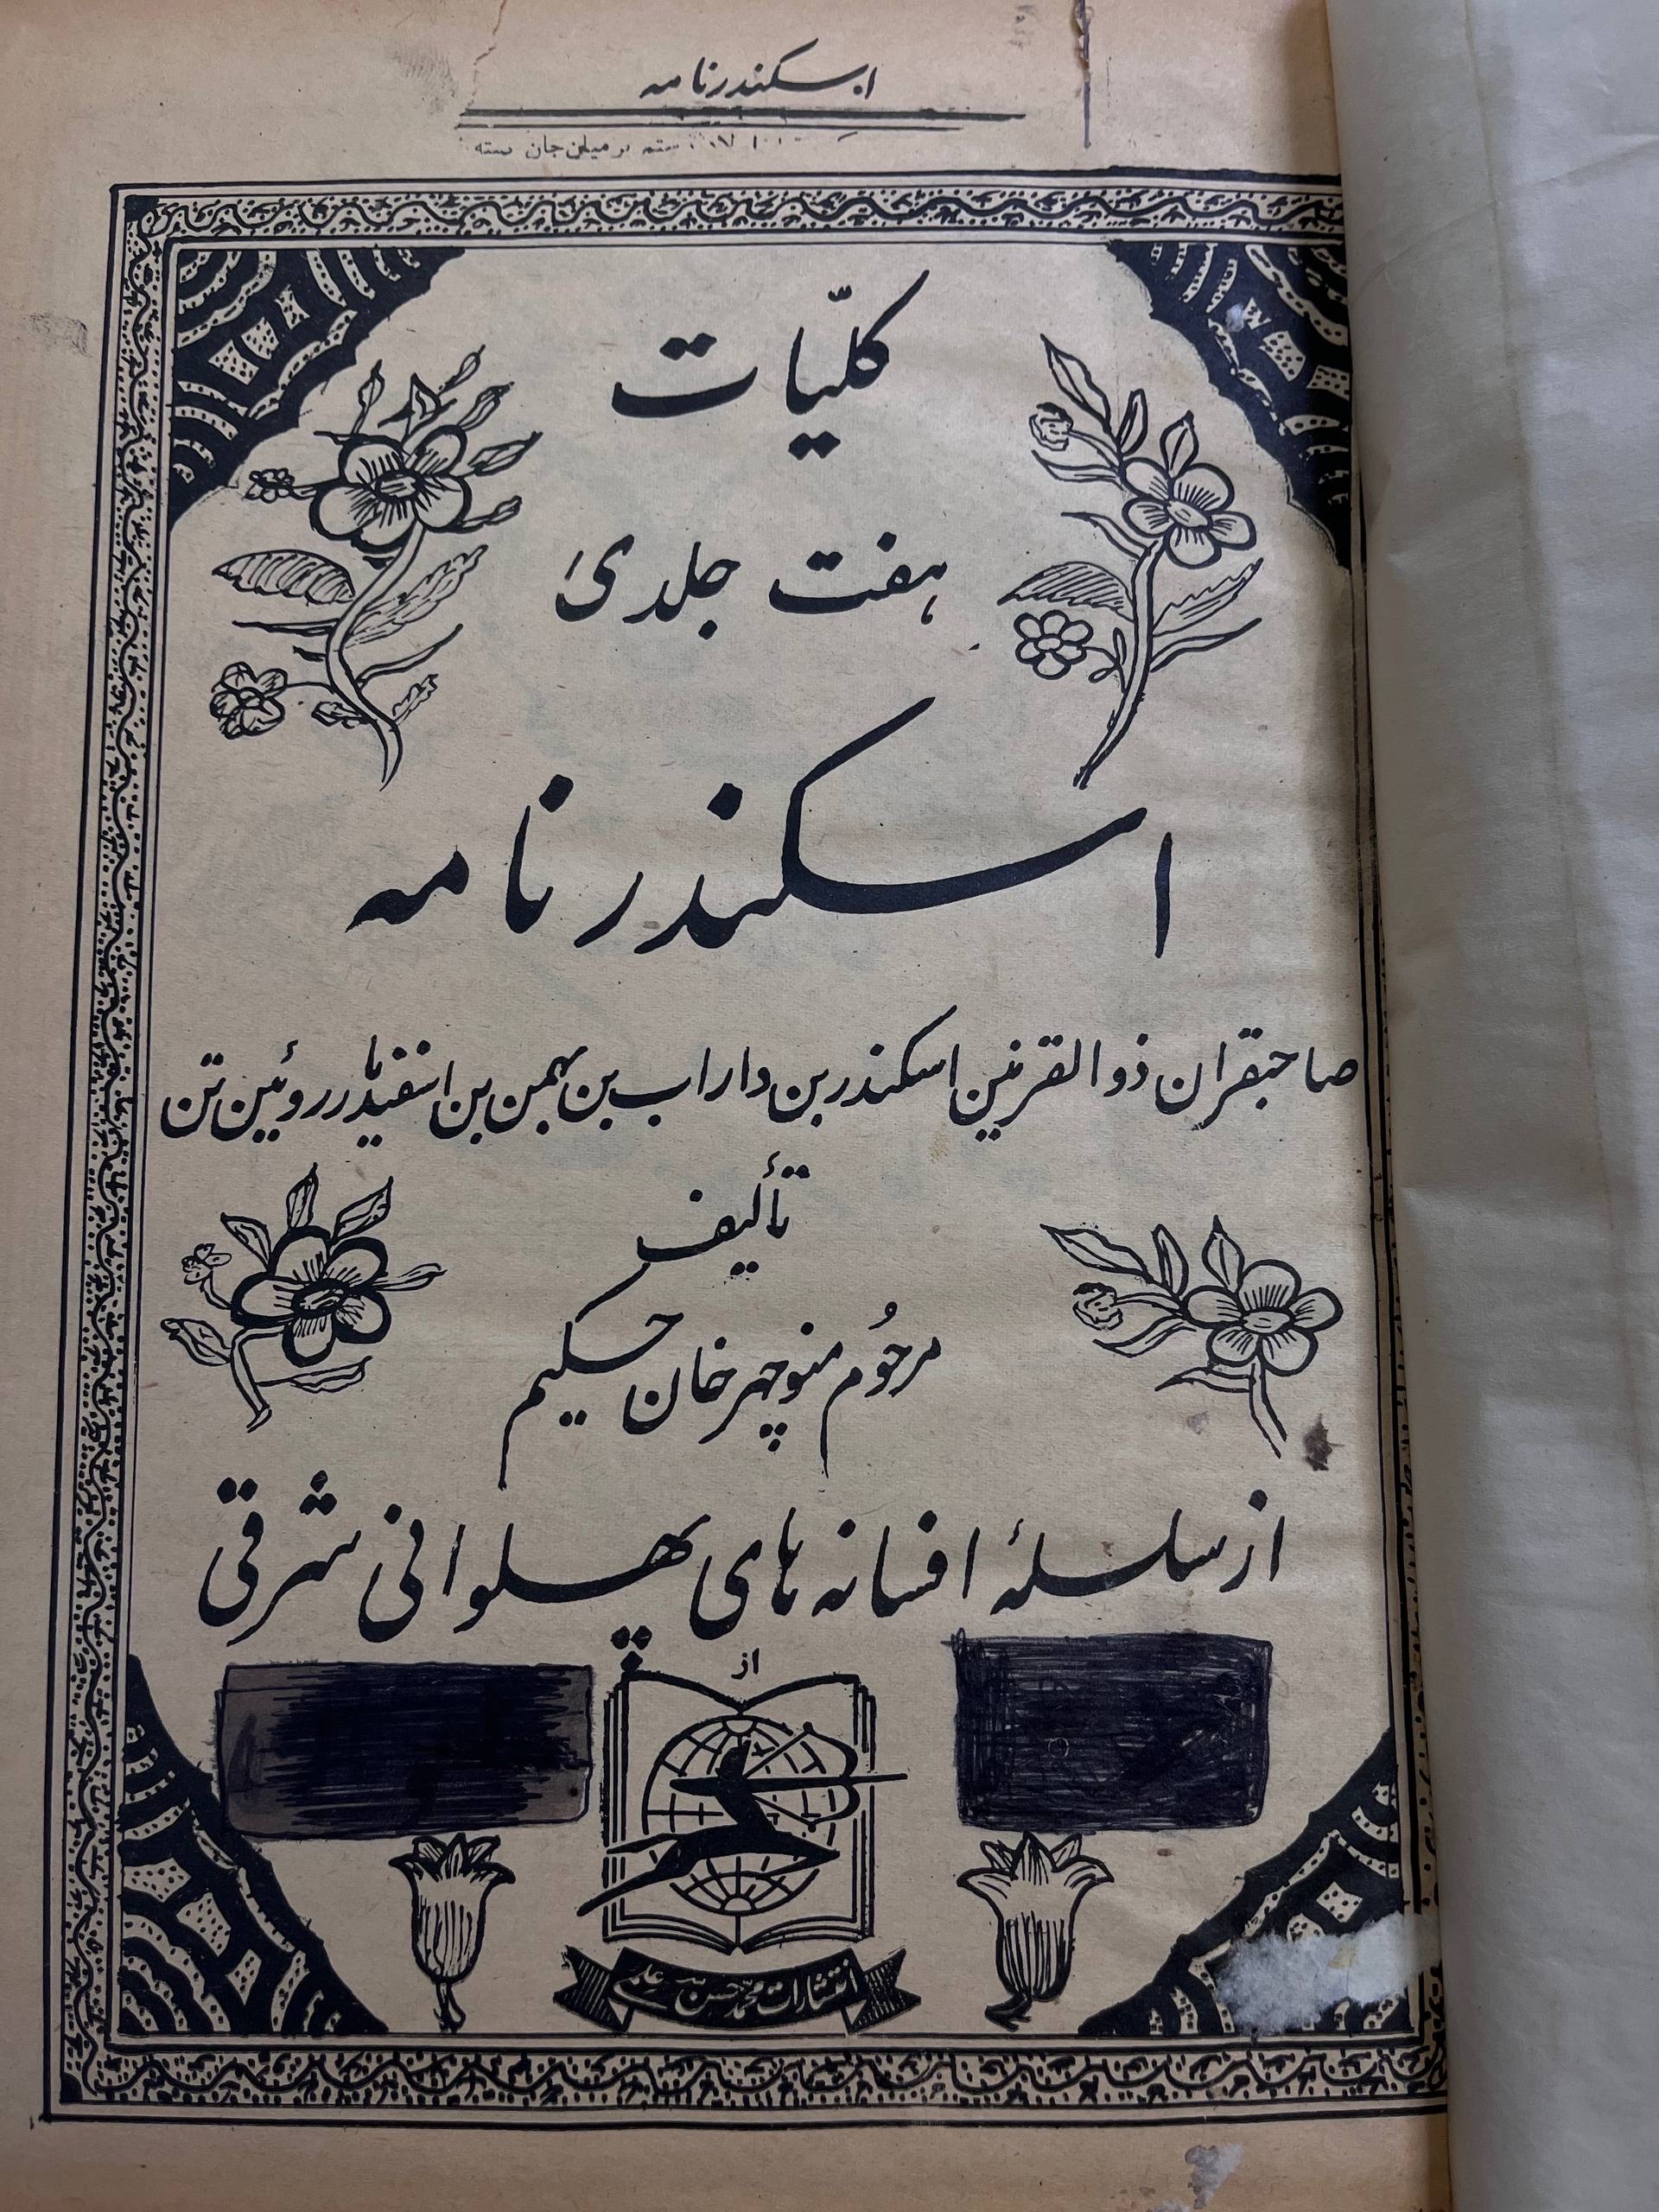 اسکندرنامه
کلیّات
هفت جلدی
اسکندرنامه
صاحبقران ذوالقرنین اسکندر بن داراب بن بهمن بن اسفندیار روئین تن
تألیف
مرحُوم منوچهرخان حکیم
از سلسلهٔ افسانه های پهلوانی شرقی
از
انتشارات محمد حسن علمی